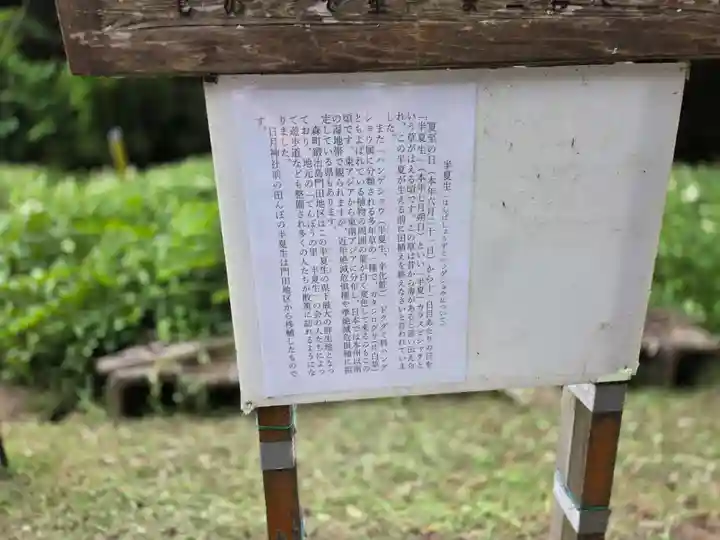 半夏生(はんげしょうずとハンゲショウについて)
夏至の日(本年六月二十一日)から十一日目あたりの日を
「半夏生(本年七月朔日)といい、半夏(カラスビシャクと
いう草がはえる頃です。この草は昔から毒があると言い伝えら
れ、この半夏が生える前に田植えを終えなさいと言われていま
した。
また「ハンゲショウ(半夏生、半化粧)」ドクダミ科ハンゲ
ショウ属に分類される多年草の一種で、カタシログサ(片白草)
ともよばれている植物の周囲の葉が白く変色して来るのもこの
頃です。東アジアから東南アジアに分布し、日本では本州以南
の湿地帯で観られますが、近年絶滅危惧種や準絶滅危惧種に指
定している県もあります。
森町鍛治島門田地区はこの半夏生の県下最大の群生地となっ
ており、地元の「てんぽうの里 半夏生」の会の人たちによっ
て遊歩道なども整備され多くの人たちが散策に訪れるようにな
りました。
日月神社前の田んぼの半夏生は門田地区から移植したもので
す。